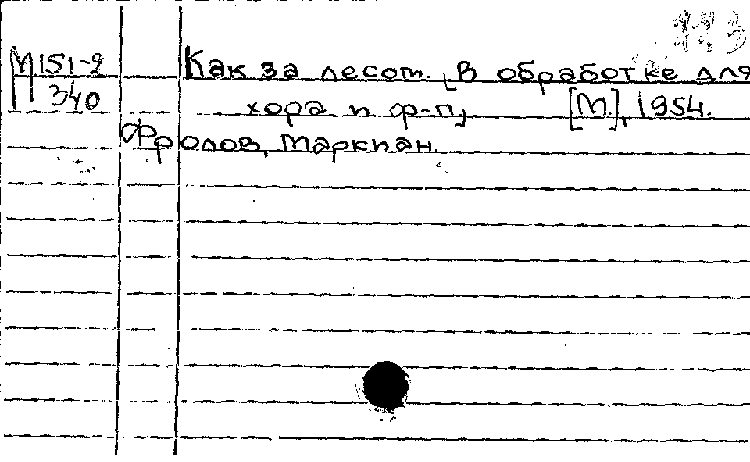 М 151-2
340
Как за лесом. [В обработке для
хора и ф-п] [М.], 1954.
Фролов, Маркиан.